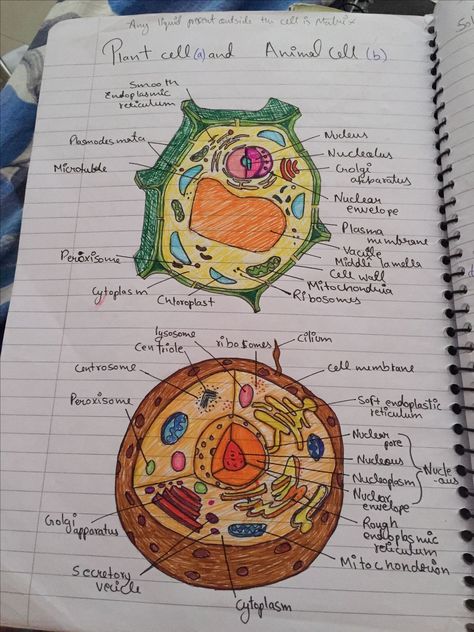 Any liquid present outside the cell is Matrix
Plant cell (a) and Animal Cell (b)
Smooth
Endoplasmic
reticulum
Plasmodesmata
Microtubule
Peroxisome
Cytoplasm
Chloroplast
Nucleus
Nucleolus
Golgi
apparatus
Nuclear
envelope
Plasma
membrane
Vacuole
Middle lamella
Cell wall
Mitochondria
Ribosomes
lysosome
Centriole
ribosomes
cilium
Centrosome
Peroxisome
Golgi
apparatus
Secretory
vericle
Cytoplasm
cell membrane
Soft endoplastic
reticulum
Nuclear
pore
Nucleous
Nucleoplasm
Nuclear
envelope
Nucle
-aus
Rough
endoplasmic
reticulum
Mitochondrion